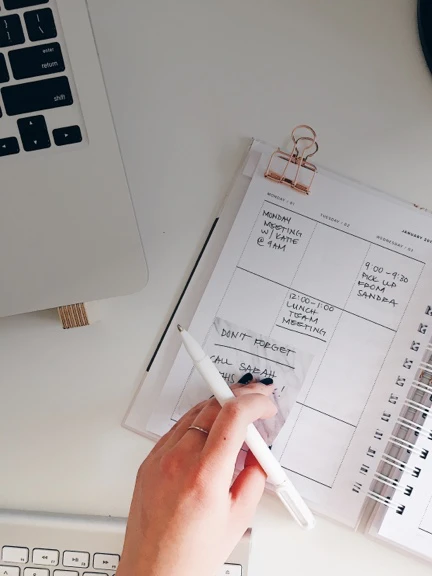 enter
return
shift
MONDAY / 01
TUESDAY / 02
WEDNESDAY / 03
JANUARY
MONDAY
MEETING
W/ KATIE
@ 9AM
9:00-9:30
PICK UP
FROM
SANDRA
12:00-1:00
LUNCH
TEAM
MEETING
DON'T FORGET
CALL SARAH
THIS
!